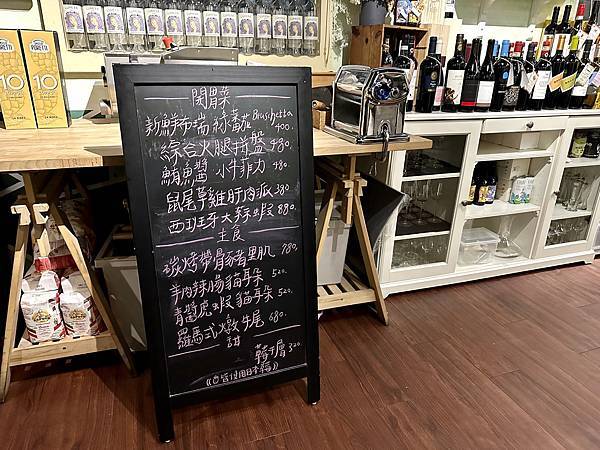 開胃菜
新鮮布瑞 番茄 Bruschetta 400.
綜合火腿拼盤 480.
鮪魚醬 小牛菲力 480.
鼠尾草雞肝肉派 380
西班牙大紅蝦 880.
主食
碳烤帶骨豬里肌 780.
羊肉辣腸貓耳朵 520.
青醬虎蝦貓耳朵 520.
羅馬式燉牛尾 680.
甜
千層 320
10
10